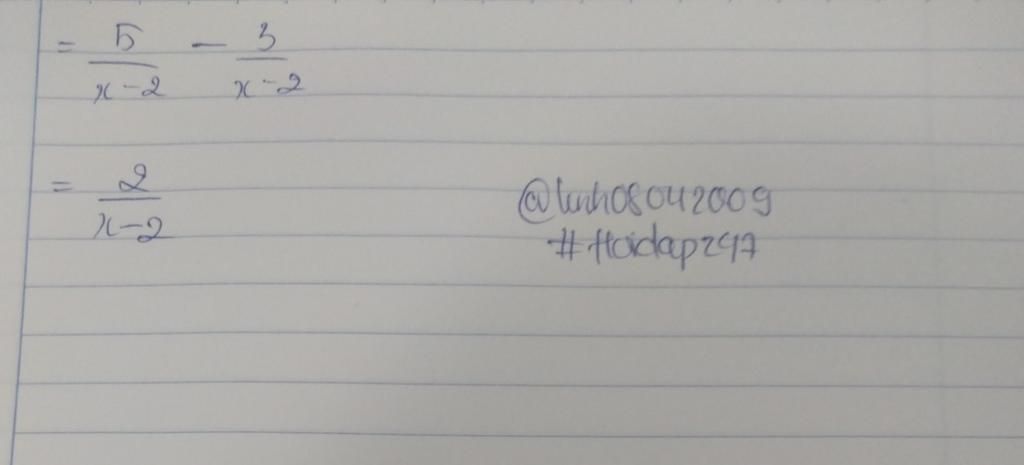 = 5/(x-2) - 3/(x-2)
= 2/(x-2)
@linh08042009
#Hoidap247